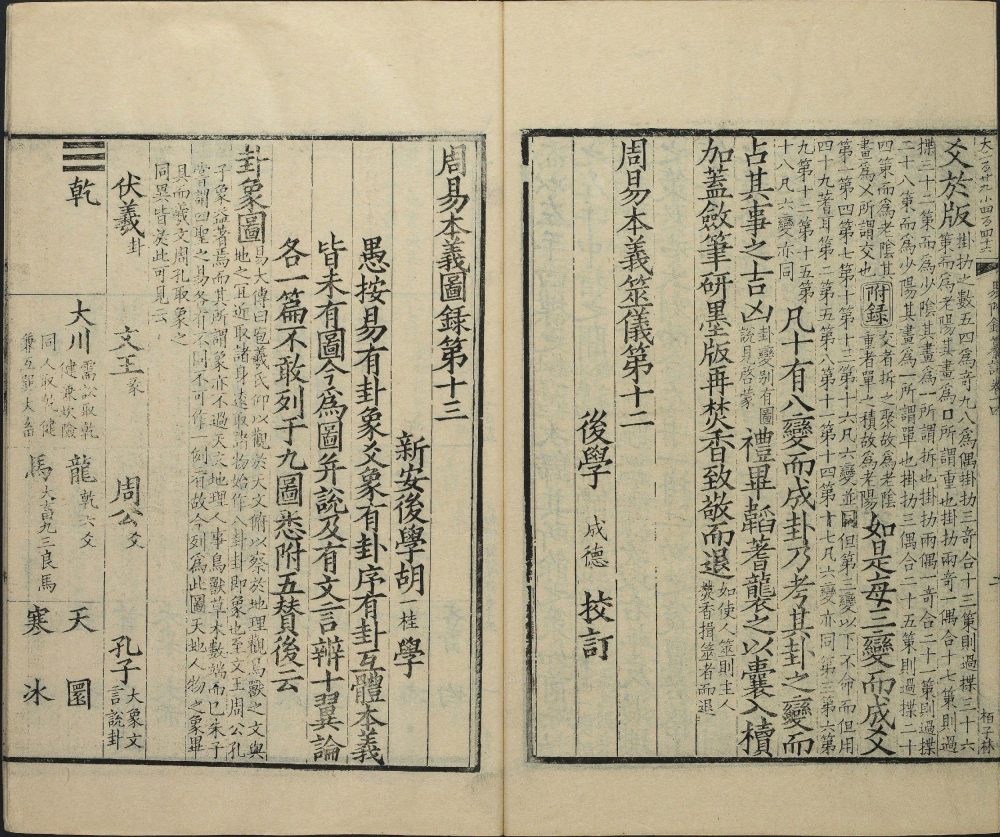 大一百廿九小四百四十三
爻於版掛扐之數五四為奇九八為偶掛扐三奇合十三策則過揲三十六
策而為老陽其畫為口所謂重也掛扐兩奇一偶合十七策則過
揲三十二策而為少陰其畫為一所謂拆也掛扐兩偶一奇合二十一策則過揲
二十八策而為少陽其畫為一所謂單也掛扐三偶合二十五策則過揲二十
四策而為老陰其
畫為乂所謂交也附錄交者拆之聚故為老陰
重者單之積故為老陽如是每三變而成爻
第一第四第七第十第十三第十六凡六變並同但第三變以下不命而但用
四十九蓍耳第二第五第八第十一第十四第十七凡六變亦同第三第六第
九第十二第十五第
十八凡六變亦同凡十有八變而成卦乃考其卦之變而
占其事之吉凶卦變別有圖
說見啓蒙禮畢韜蓍襲之以囊入櫝
加蓋斂筆研墨版再焚香致敬而退如使人筮則主人
焚香揖筮者而退
周易本義筮儀第十二
後學 成德 挍訂
柏子林
周易本義圖錄第十三
新安後學胡一桂學
愚按易有卦象爻象有卦序有卦互體本義
皆未有圖今為圖并說及有文言辨十翼論
各一篇不敢列于九圖悉附五贊後云
卦象圖易大傳曰包羲氏仰以觀於天文俯以察於地理觀鳥獸之文與
地之宜近取諸身遠取諸物始作八卦卦即象也至文王周公孔
子象益著焉而其所謂象亦不過天文地理人事鳥獸草木數端而已朱子
嘗謂四聖之易各有不同不可作一例看故今列為此圖天地人物之象畢
具而羲文周孔取象之
同異皆於此可見云
伏羲卦 文王彖 周公爻 孔子大象文
言說卦
☰乾 大川需訟取乾
健兼坎險 龍乾六爻 天 圜
同人取乾健
兼互巽大畜 馬大畜九三良馬 寒 冰